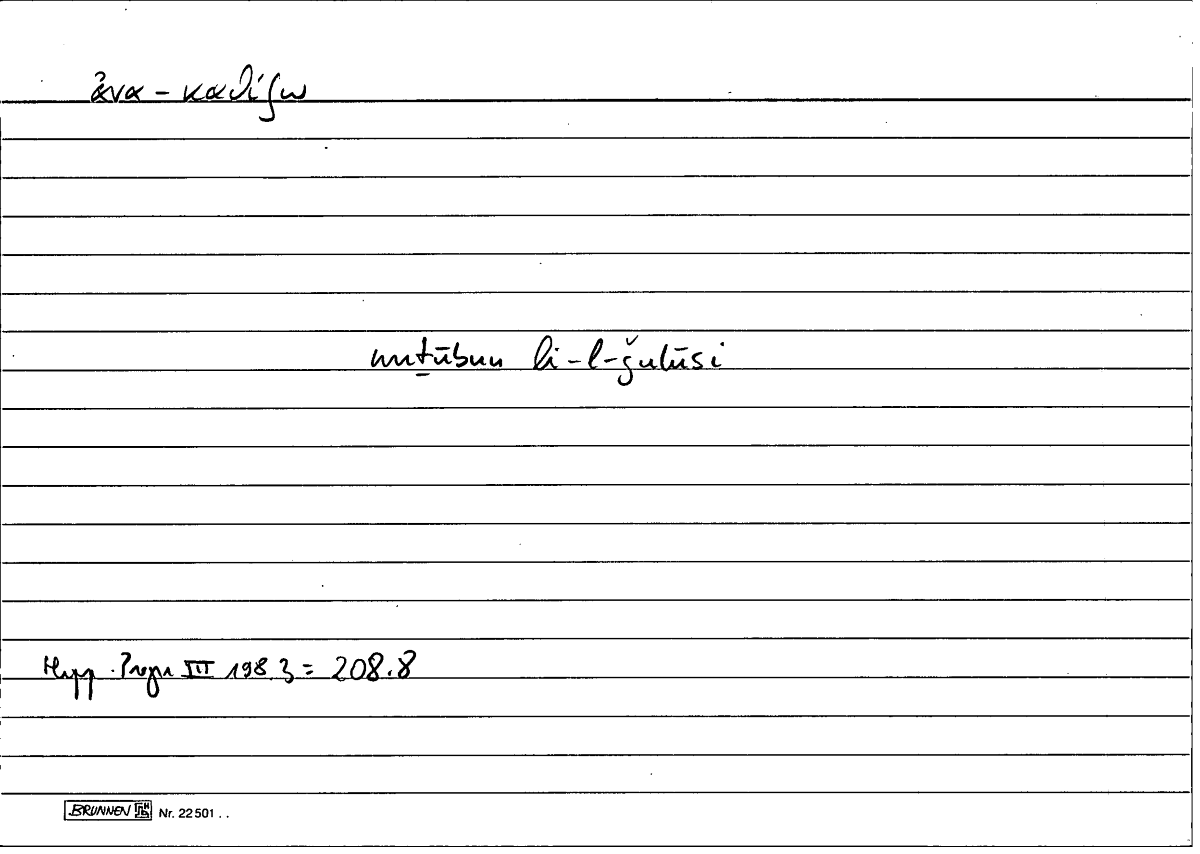 ἀνα-καθίζω
wuṯūbun li-l-ǧulūsi
Hipp. Progn III 198.3 = 208.8
BRUNNEN Nr. 22 501 . .